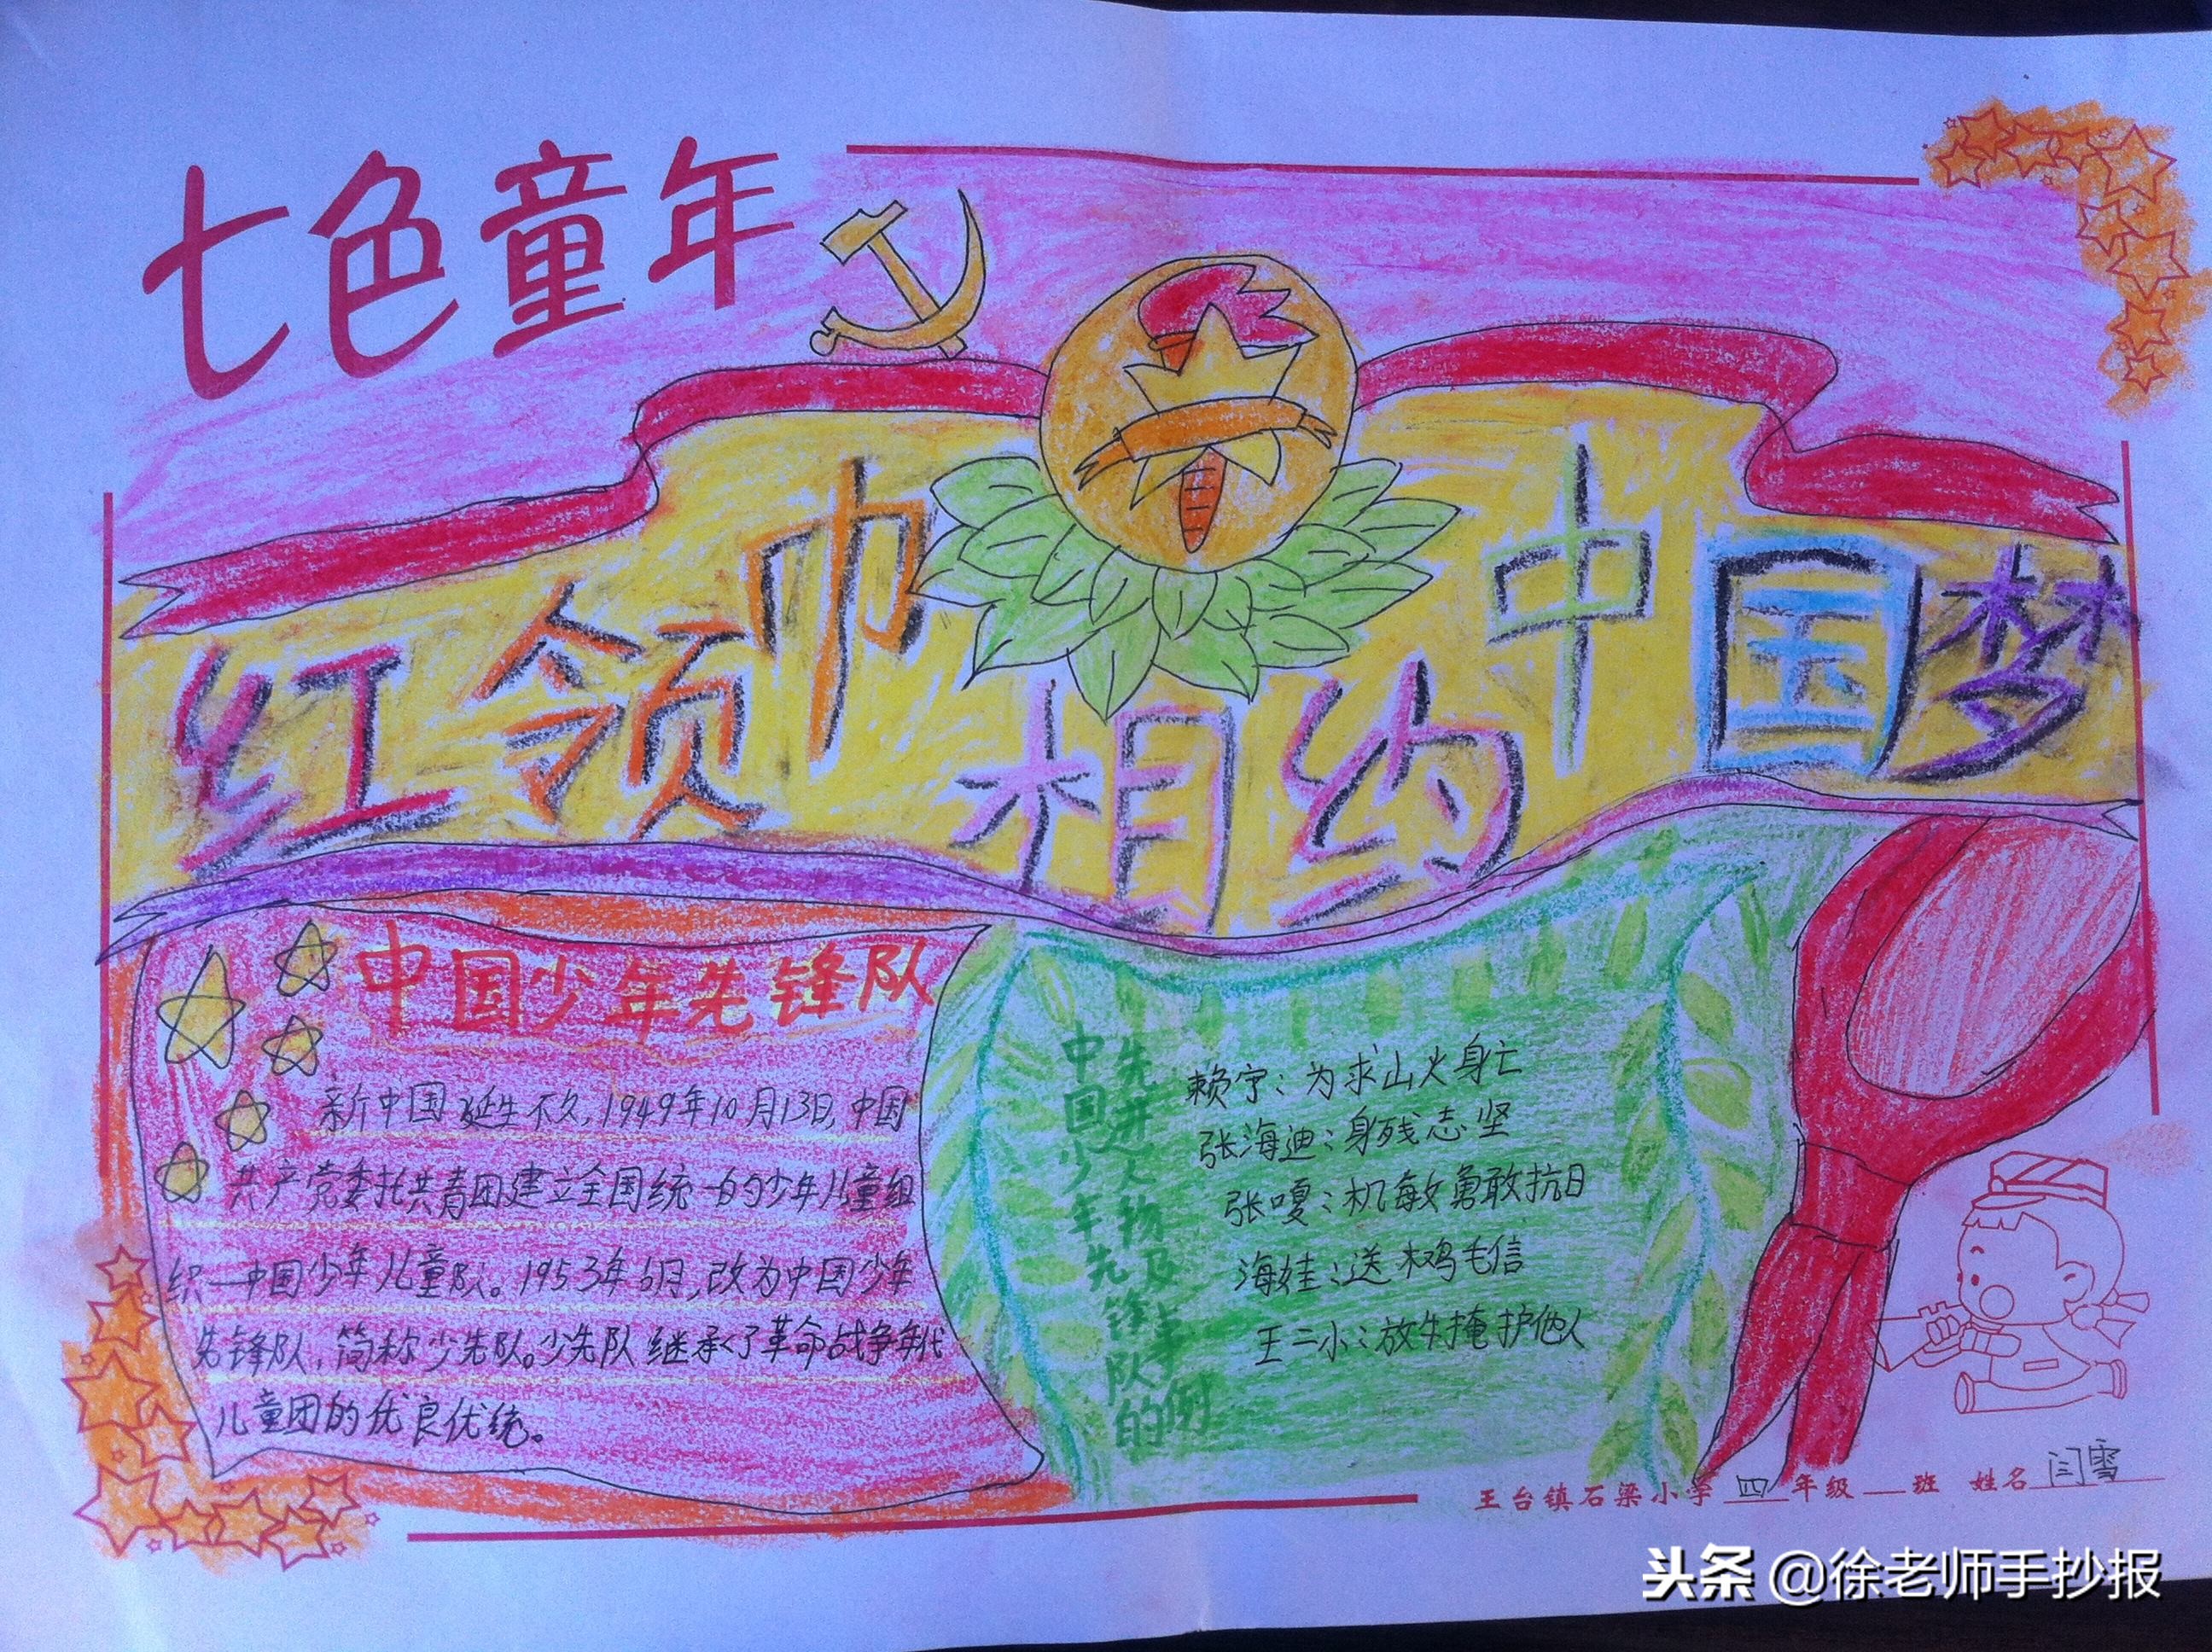 七色童年
红领巾
相约
中国梦
中国少年先锋队
新中国诞生不久,1949年10月13日,中国
共产党委托共青团建立全国统一的少年儿童组
织一中国少年儿童队。1953年6月,改为中国少年
先锋队,简称少先队。少先队继承了革命战争年代
儿童团的优良优统。
中国少年先锋队的
先进人物及事例
赖宁:为求山火身亡
张海迪:身残志坚
张嘎:机敏勇敢抗日
海娃:送鸡毛信
王二小:放牛掩护他人
王台镇石梁小学 四 年级 班 姓名 闫雪
头条 @徐老师手抄报